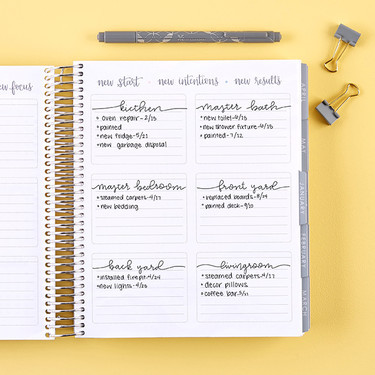 new focus
new start - new intentions - new results
kitchen
• oven repair - 2/15
• painted
• new fridge - 5/21
• new garbage disposal
master bath
• new toilet - 4/15
• new shower fixture - 4/15
• painted - 7/22
master bedroom
• steamed carpets - 4/27
• new bedding
front yard
• replaced boards - 8/14
• painted deck - 9/20
back yard
• installed firepit - 4/24
• new lights - 4/26
livingroom
• steamed carpets - 4/27
• decor pillows
• coffee bar - 3/11
JANUARY
FEBRUARY
MARCH